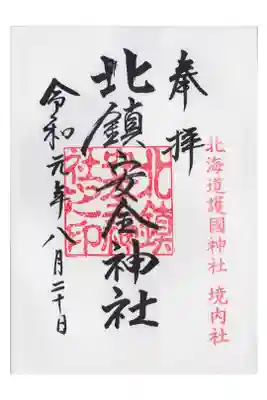 奉拝
北海道護國神社 境内社
北鎮安全神社
北鎮
安全神
社之印
令和元年八月二十日